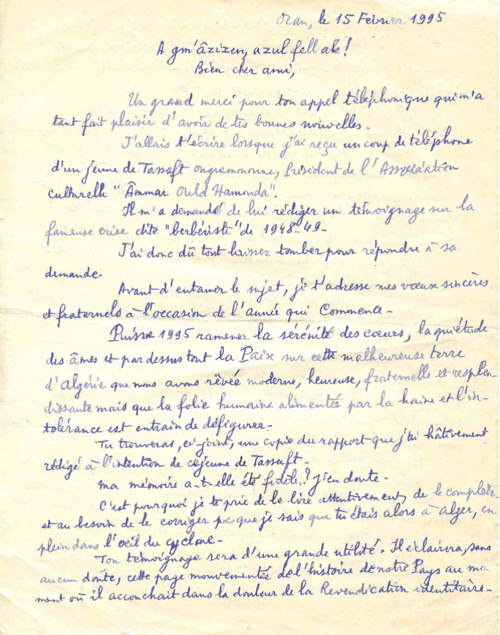 Oran, le 15 Février 1995
A gm'âzizen, azul fell ak!
Bien cher ami,
Un grand merci pour ton appel téléphonique qui m'a
tant fait plaisir d'avoir de tes bonnes nouvelles.
J'allais t'écrire lorsque j'ai reçu un coup de téléphone
d'un jeune de Tassaft Président de l'Association
culturelle "Âmmar Ould Hamouda".
Il m'a demandé de lui rédiger un témoignage sur la
fameuse crise dite "berbériste" de 1948-49.
J'ai donc dû tout laisser tomber pour répondre à sa
demande.
Avant d'entamer le sujet, je t'adresse mes vœux sincères
et fraternels à l'occasion de l'année qui commence.
Puisse 1995 ramener la sérénité des cœurs, la quiétude
des âmes et par dessus tout la Paix sur cette malheureuse terre
d'algérie que nous avons rêvée moderne, heureuse, fraternelle et resplen
dissante mais que la folie humaine alimentée par la haine et l'in-
tolérance est entrain de défigurer.
Tu trouveras, ci-joint, une copie du rapport que j'ai hâtivement
rédigé à l'intention de ce jeune de Tassaft.
ma mémoire a-t-elle été fidèle? J'en doute.
C'est pourquoi je te prie de le lire attentivement, de le compléter
et au besoin de le corriger pcque je sais que tu étais alors à alger, en
plein dans l'oeil du cyclone.
Ton témoignage sera d'une grande utilité. Il éclairera, sans
aucun doute, cette page mouvementée de l'histoire de notre Pays au mo-
ment où il accouchait dans la douleur de la Revendication identitaire.